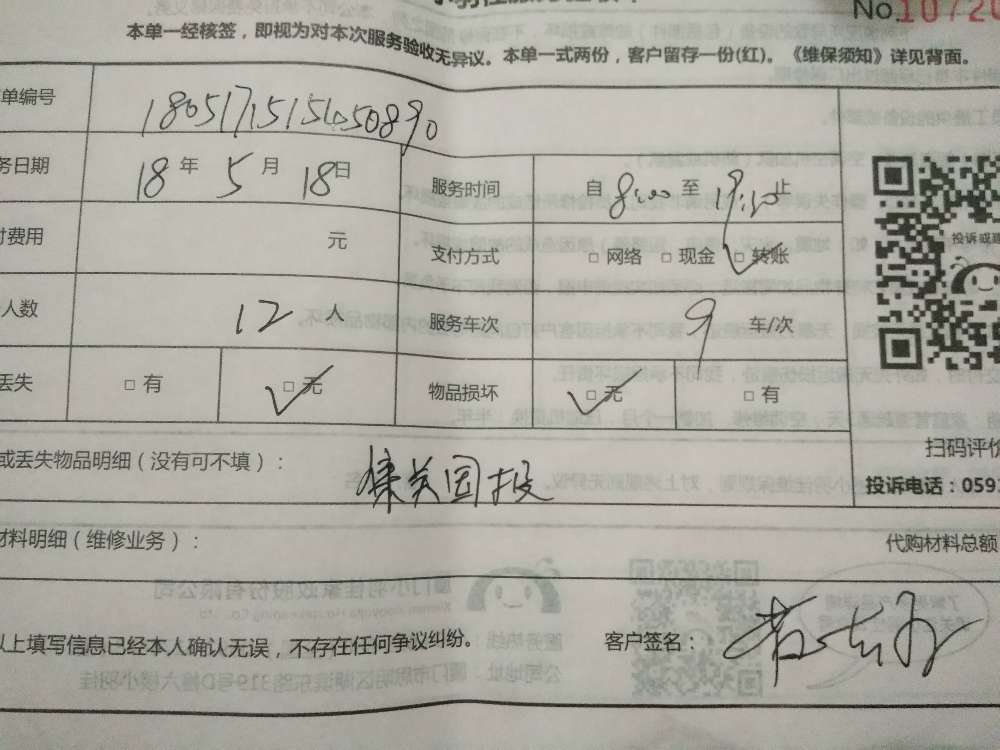 No.10720
本单一经核签，即视为对本次服务验收无异议。本单一式两份，客户留存一份(红)。《维保须知》详见背面。
单编号 1805171515050890
务日期 18 年 5 月 18 日 服务时间 自 8:00 至 19:20 止
付费用 元 支付方式 □ 网络 □ 现金 □ 转账
人数 12 人 服务车次 9 车/次
丢失 □ 有 □ 无 物品损坏 □ 无 □ 有
投诉或
扫码评价
或丢失物品明细（没有可不填）： 集美国投
投诉电话：059
材料明细（维修业务）： 代购材料总额
以上填写信息已经本人确认无误，不存在任何争议纠纷。 客户签名：